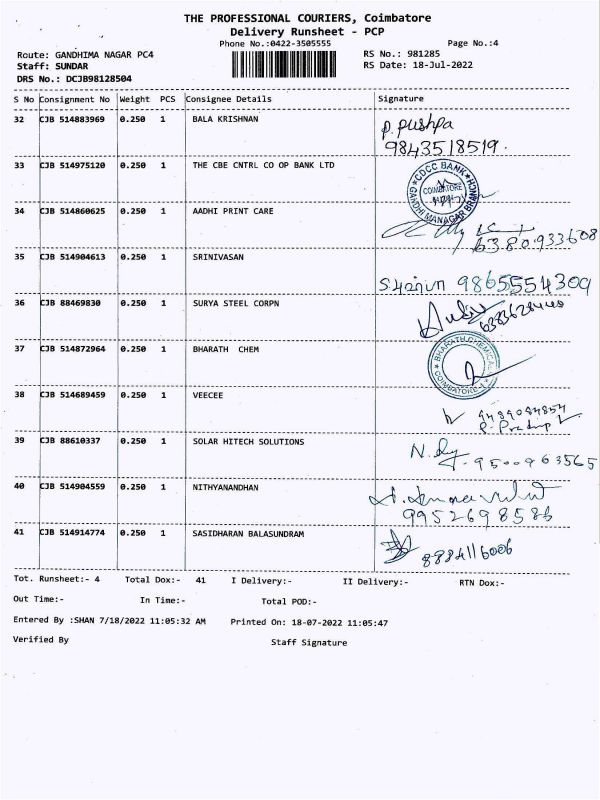 THE PROFESSIONAL COURIERS, Coimbatore
Delivery Runsheet - PCP
Phone No.:0422-3505555
Page No.:4
Route: GANDHIMA NAGAR PC4
RS No.: 981285
Staff: SUNDAR
RS Date: 18-Jul-2022
DRS No.: DCJB98128504
S No Consignment No Weight PCS Consignee Details Signature
32 CJB 514883969 0.250 1 BALA KRISHNAN
P. pushpa
9843518519.
33 CJB 514975120 0.250 1 THE CBE CNTRL CO OP BANK LTD
CDCC BANK
COIMBATORE
GANDHI MANAGAR BRANCH
34 CJB 514860625 0.250 1 AADHI PRINT CARE
6380933608
35 CJB 514904613 0.250 1 SRINIVASAN
9865554309
36 CJB 88469830 0.250 1 SURYA STEEL CORPN
37 CJB 514872964 0.250 1 BHARATH CHEM
BHARATH CHEMICAL
COIMBATORE-1
38 CJB 514689459 0.250 1 VEECEE
P. Pradeep
39 CJB 88610337 0.250 1 SOLAR HITECH SOLUTIONS
9500963565
40 CJB 514904559 0.250 1 NITHYANANDHAN
9952698586
41 CJB 514914774 0.250 1 SASIDHARAN BALASUNDRAM
8884116006
Tot. Runsheet:- 4 Total Dox:- 41 I Delivery:- II Delivery:- RTN Dox:-
Out Time:- In Time:- Total POD:-
Entered By :SHAN 7/18/2022 11:05:32 AM Printed On: 18-07-2022 11:05:47
Verified By Staff Signature